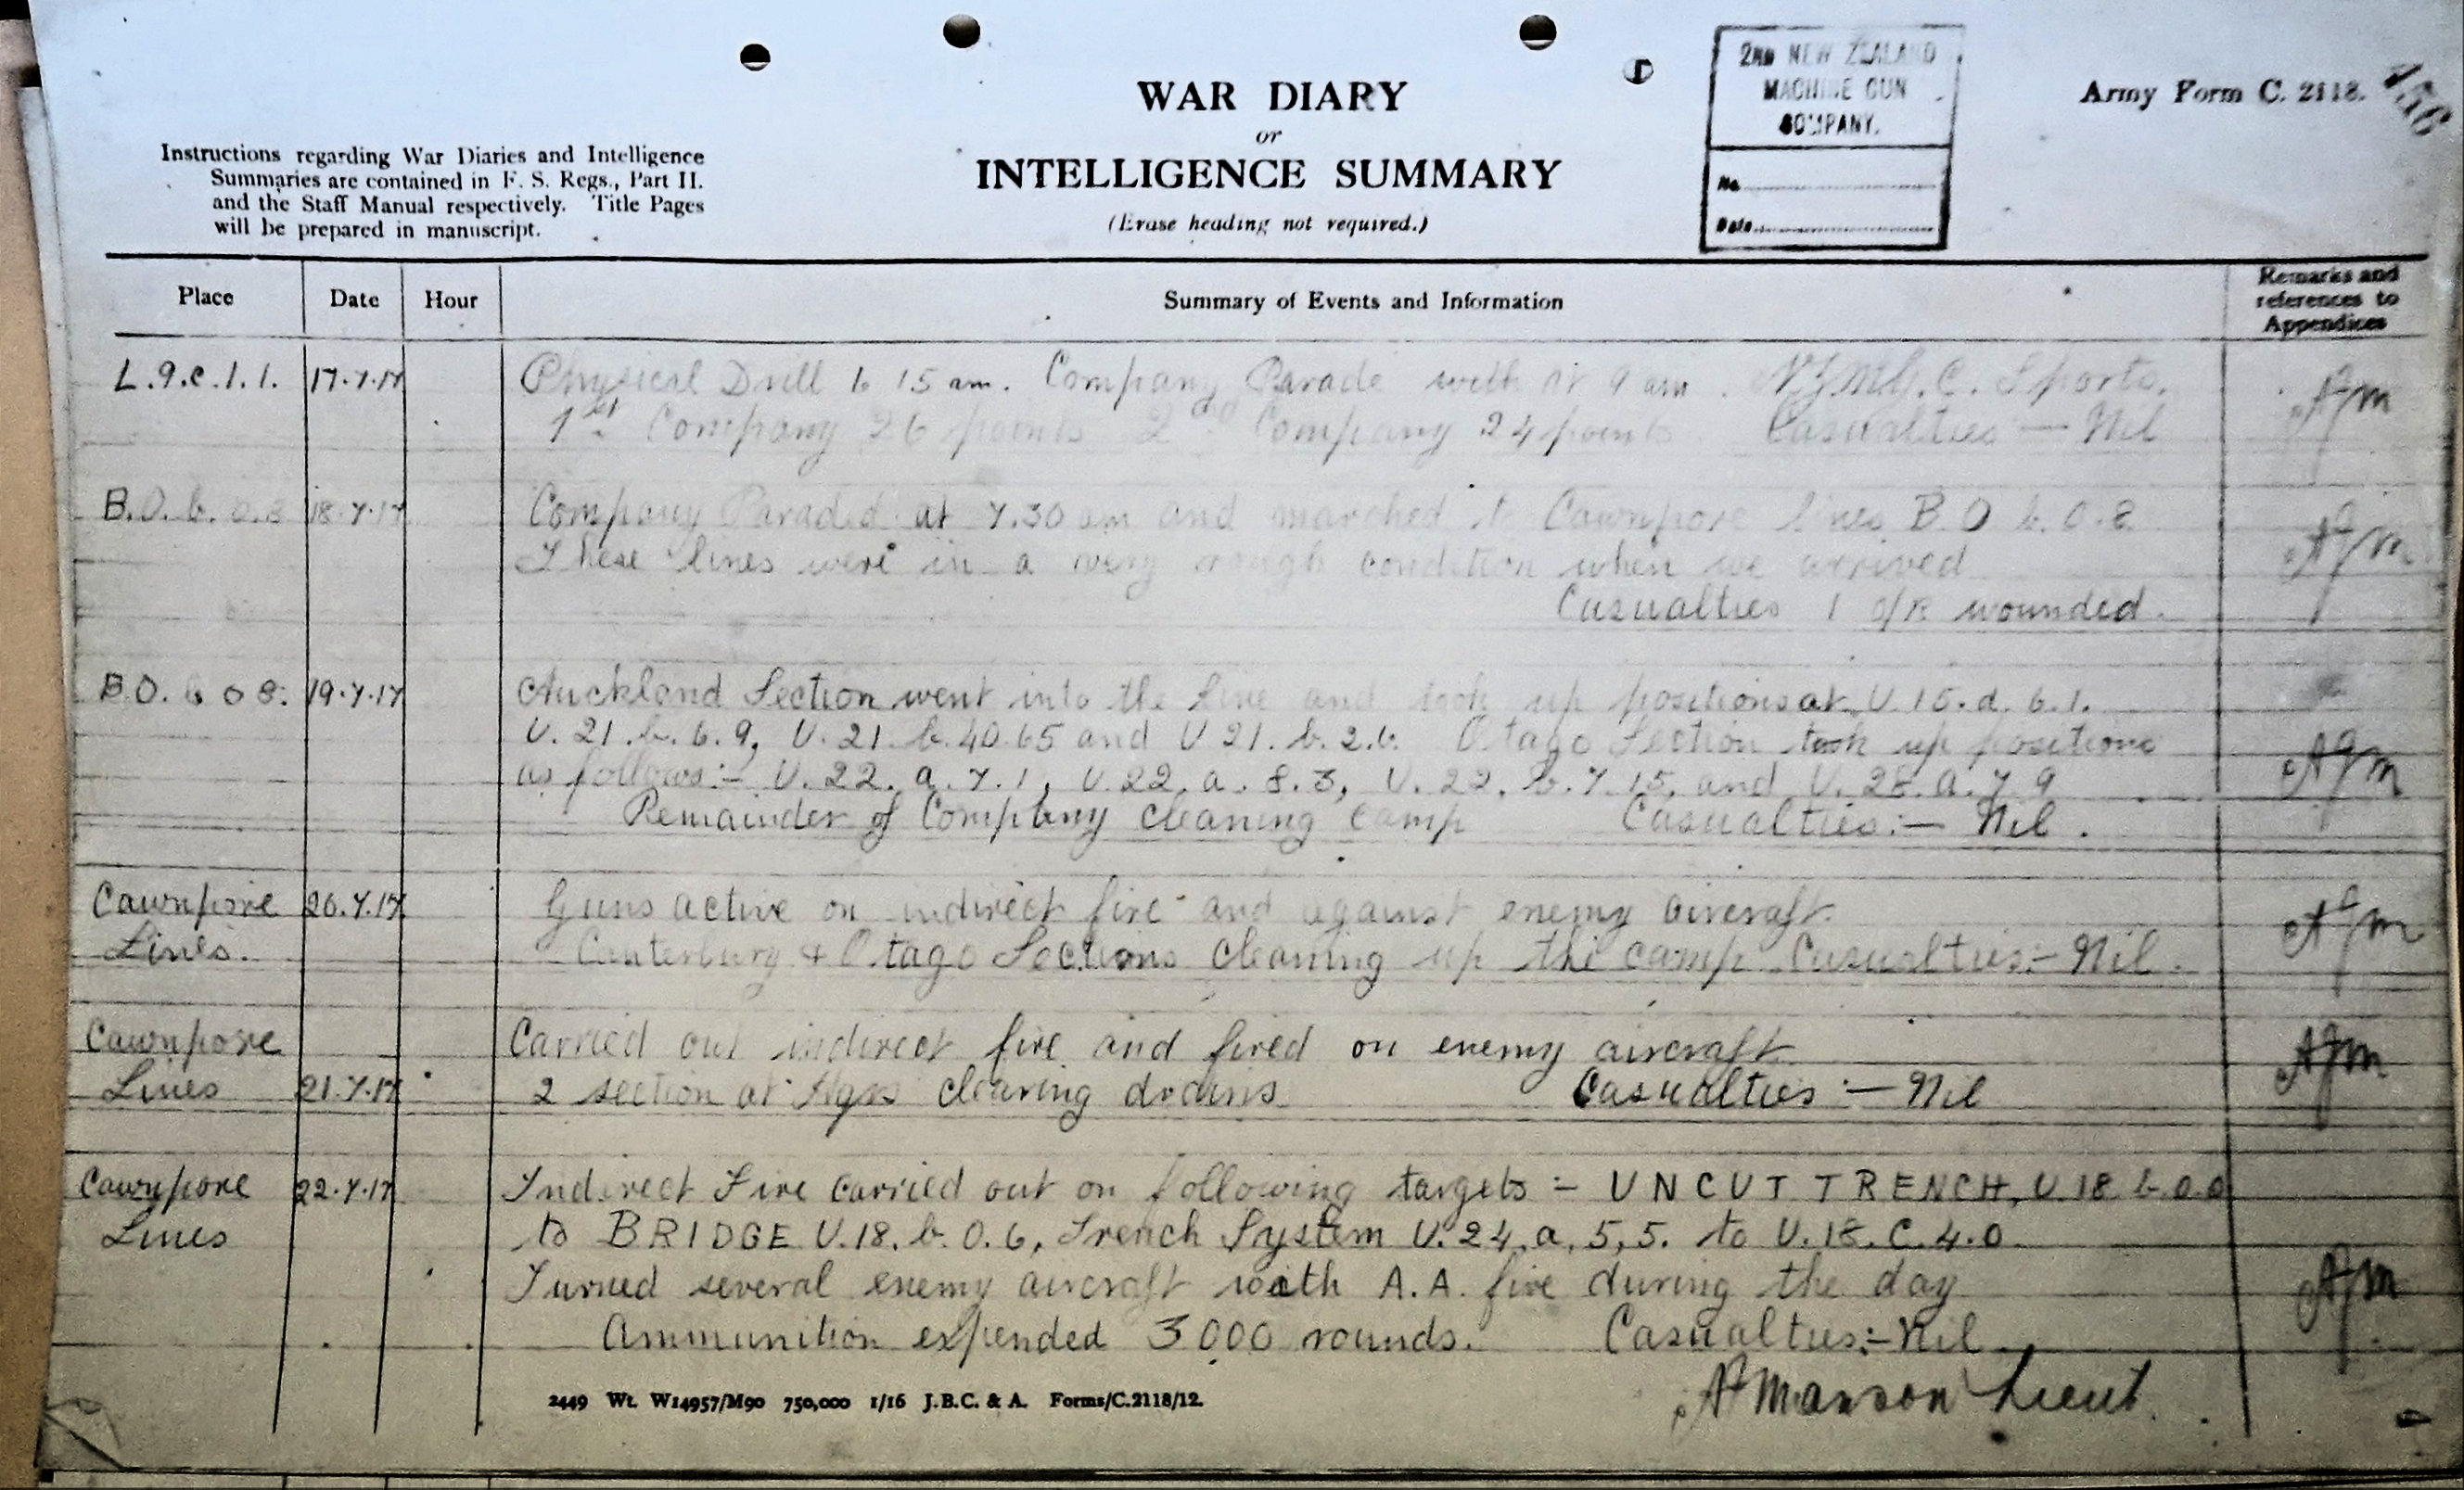 2ND NEW ZEALAND
MACHINE GUN
COMPANY.
No.
Date
Army Form C. 2118.
WAR DIARY
or
INTELLIGENCE SUMMARY
(Erase heading not required.)
Instructions regarding War Diaries and Intelligence
Summaries are contained in F. S. Regs., Part II.
and the Staff Manual respectively. Title Pages
will be prepared in manuscript.
Place Date Hour Summary of Events and Information Remarks and references to Appendices
L.9.c.1.1. 17.7.17 Physical Drill 6 15 am. Company Parade with at 9 am. NZMG.C. Sports.
1st Company 26 points 2nd Company 24 points. Casualties — Nil AJM
B.O.6.0.8 18.7.17 Company Paraded at 7.30 am and marched to Cawnpore lines B.O 6.0.8.
These lines were in a very rough condition when we arrived AJM
Casualties 1 O/R wounded.
B.O. 6 0 8. 19.7.17 Auckland Section went into the line and took up positions at U.15.d.6.1.
U.21.b.6.9, U.21.b.40.65 and U 21.b.2.6. Otago Section took up positions
as follows:- U.22.a.7.1, U.22.a.8.3, U.22.b.7.15, and U.28.a.7.9 AJM
Remainder of Company cleaning camp Casualties:— Nil.
Cawnpore 20.7.17 Guns active on indirect fire and against enemy aircraft. AJM
Lines. Canterbury & Otago Sections cleaning up the camp Casualties:- Nil.
Cawnpore Carried out indirect fire and fired on enemy aircraft AJM
Lines 21.7.17 2 section at Hqrs clearing drains Casualties:— Nil
Cawnpore 22.7.17 Indirect Fire carried out on following targets:- UNCUT TRENCH, U.18.b.0.0
Lines to BRIDGE U.18.b.0.6, Trench System U.24.a,5,5. to U.18.C.4.0.
Turned several enemy aircraft with A.A. fire during the day AJM
Ammunition expended 3000 rounds. Casualties:- Nil.
2449 Wt. W14957/M90 750,000 1/16 J.B.C. & A. Forms/C.2118/12.
Manson Lieut.